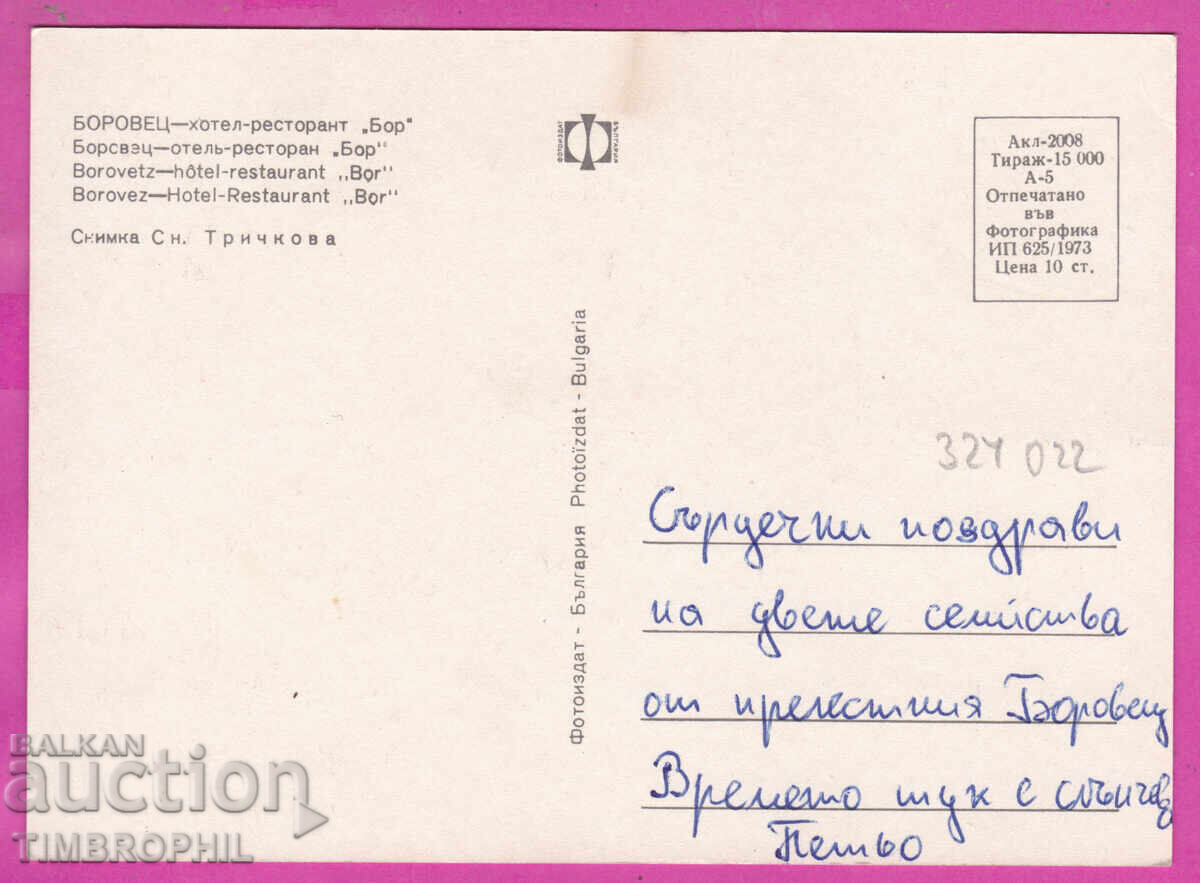 БОРОВЕЦ—хотел-ресторант „Бор"
Борсвэц—отель-ресторан „Бор"
Borovetz—hôtel-restaurant ,,Bor''
Borovez—Hotel-Restaurant ,,Bor''
Снимка Сн. Тричкова
ФОТОИЗДАТ
БЪЛГАРИЯ
Акл-2008
Тираж-15 000
А-5
Отпечатано
във
Фотографика
ИП 625/1973
Цена 10 ст.
Фотоиздат - България Photoïzdat - Bulgaria
324 022
Сърдечни поздрави
на двете семейства
от прелестния Боровец
Времето тук е слънчево
Петьо
BALKAN
auction
TIMBROPHIL